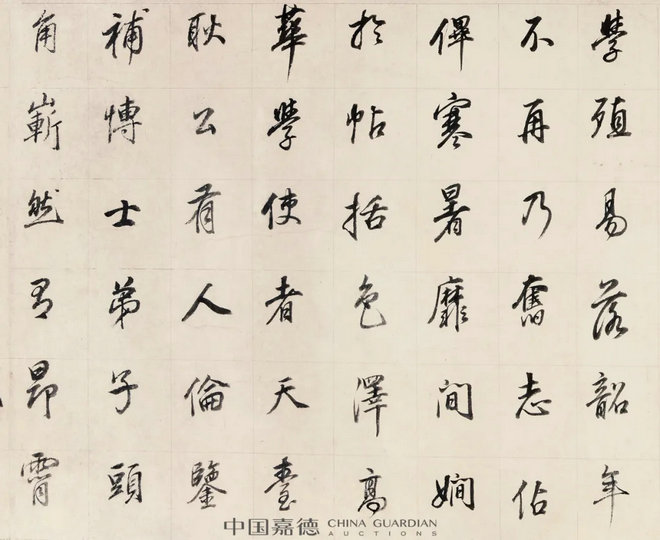 學殖易落韶年
不再乃奮志佔
俾寒暑靡間嫺
於帖括色澤高
華學使者天臺
耿公有人倫鑒
補博士弟子頭
角嶄然有昂霄
中国嘉德 CHINA GUARDIAN
AUCTIONS